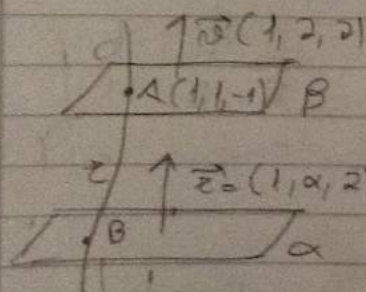 v⃗ (1, 2, 2)
A(1, 1, -1) β
r
r⃗ = (1, α, 2
B α